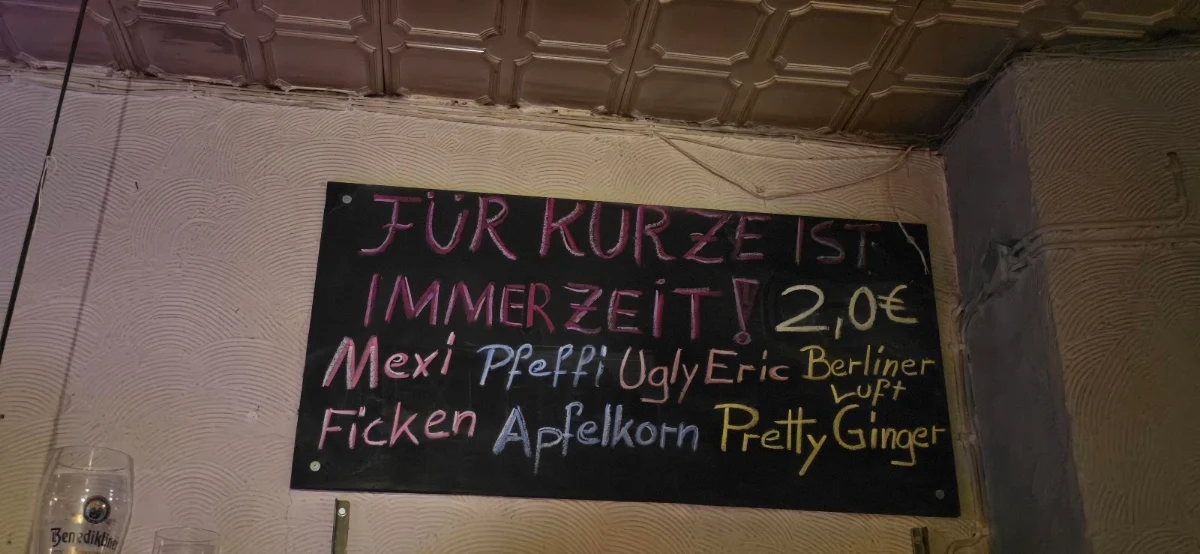 FÜR KURZE IST
IMMER ZEIT! 2,0€
Mexi Pfeffi Ugly Eric Berliner Luft
Ficken Apfelkorn Pretty Ginger
Benediktiner